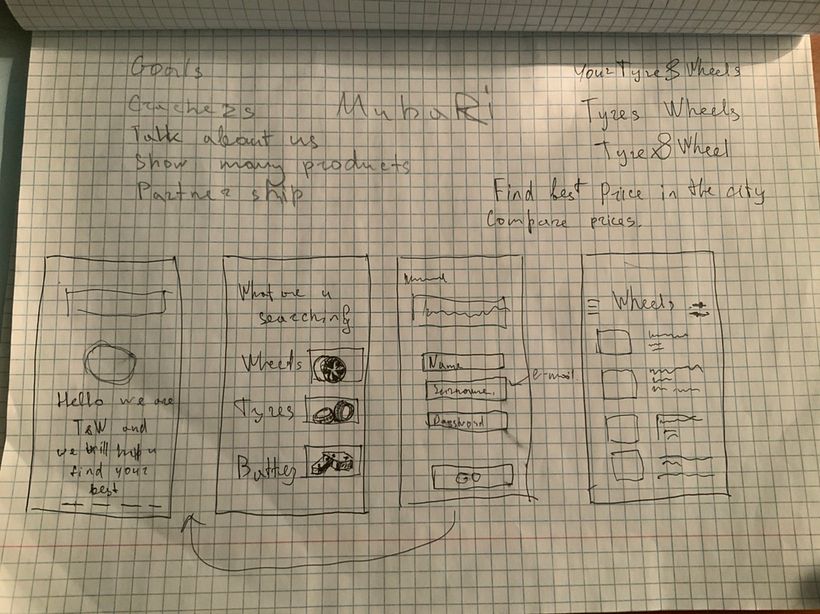 Goals
Talk about us
Show many products
Partner ship
MubaRi
Your Tyre & Wheels
Tyres Wheels
Tyre & Wheel
Find best price in the city
Compare prices.
Hello we are
T&W and
we will help u
find your
best
What are u
searching
Wheels
Tyres
Name
Surname.
e-mail
Password
GO
Wheels